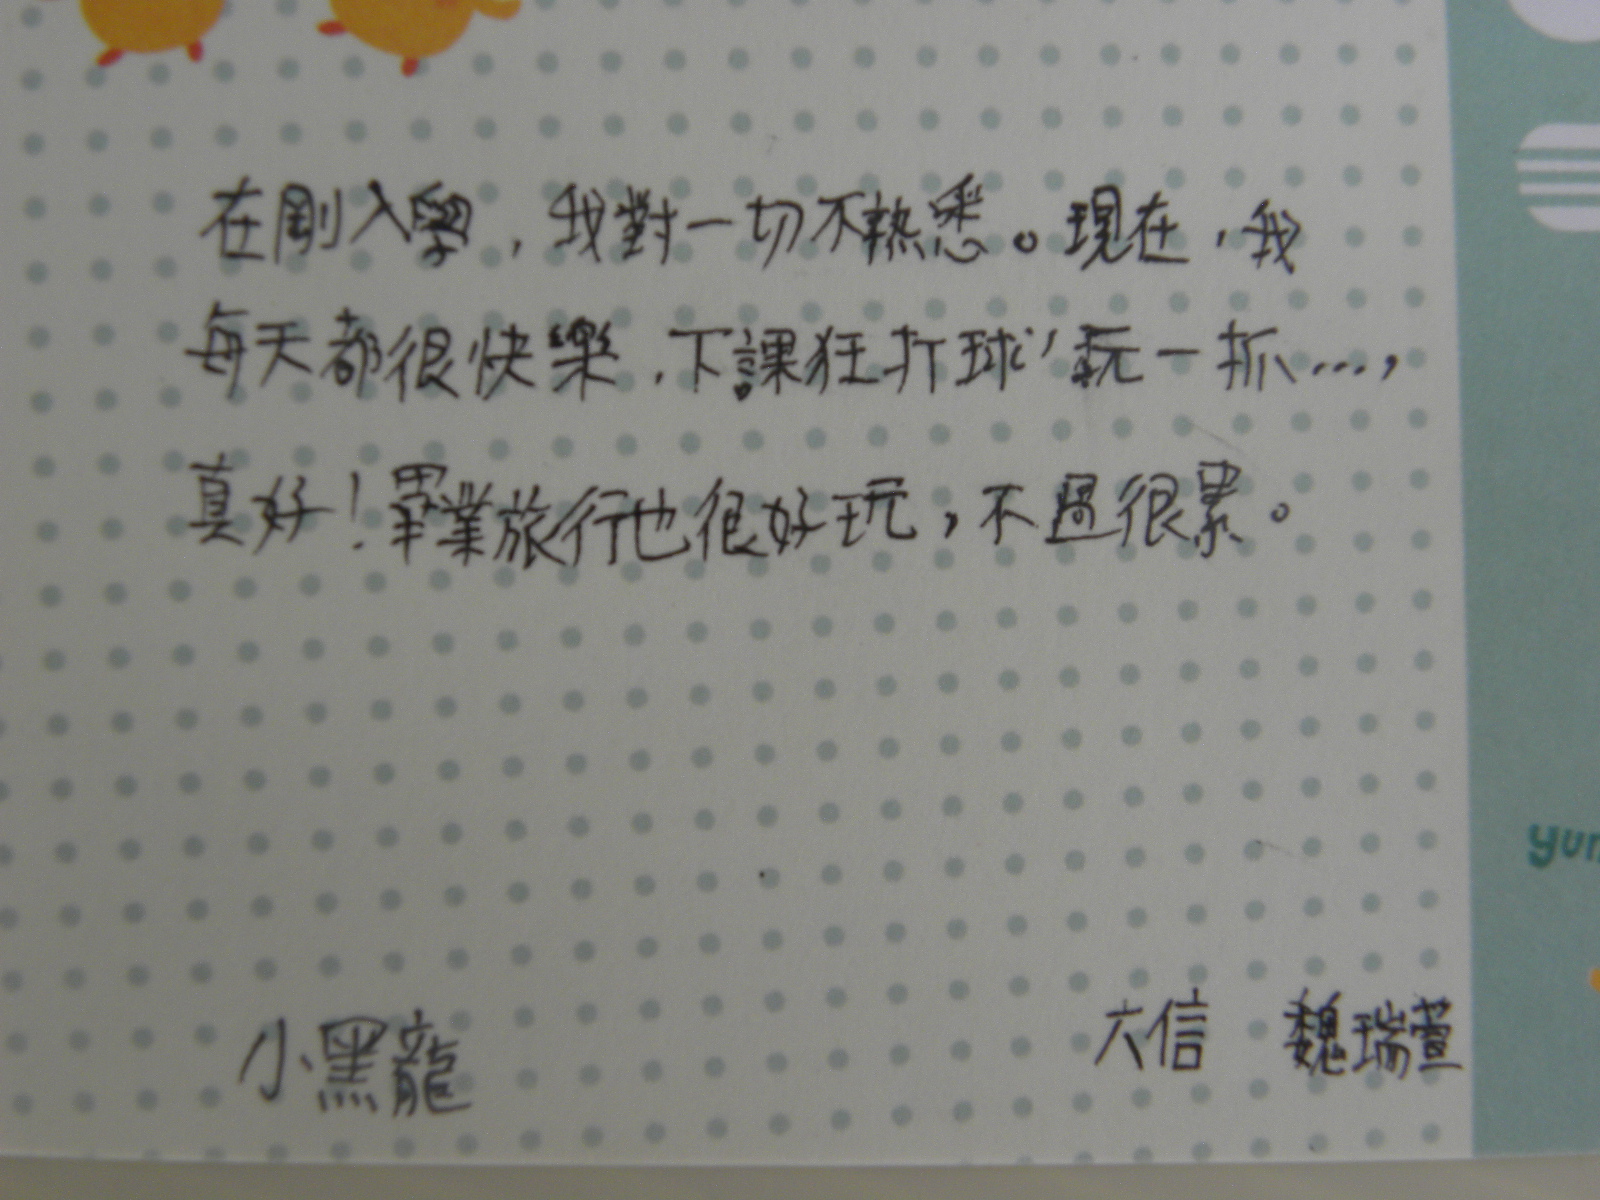 在剛入學，我對一切不熟悉。現在，我
每天都很快樂，下課狂打球、玩一抓...，
真好！畢業旅行也很好玩，不過很累。
小黑龍
六信 魏瑞萱
yum